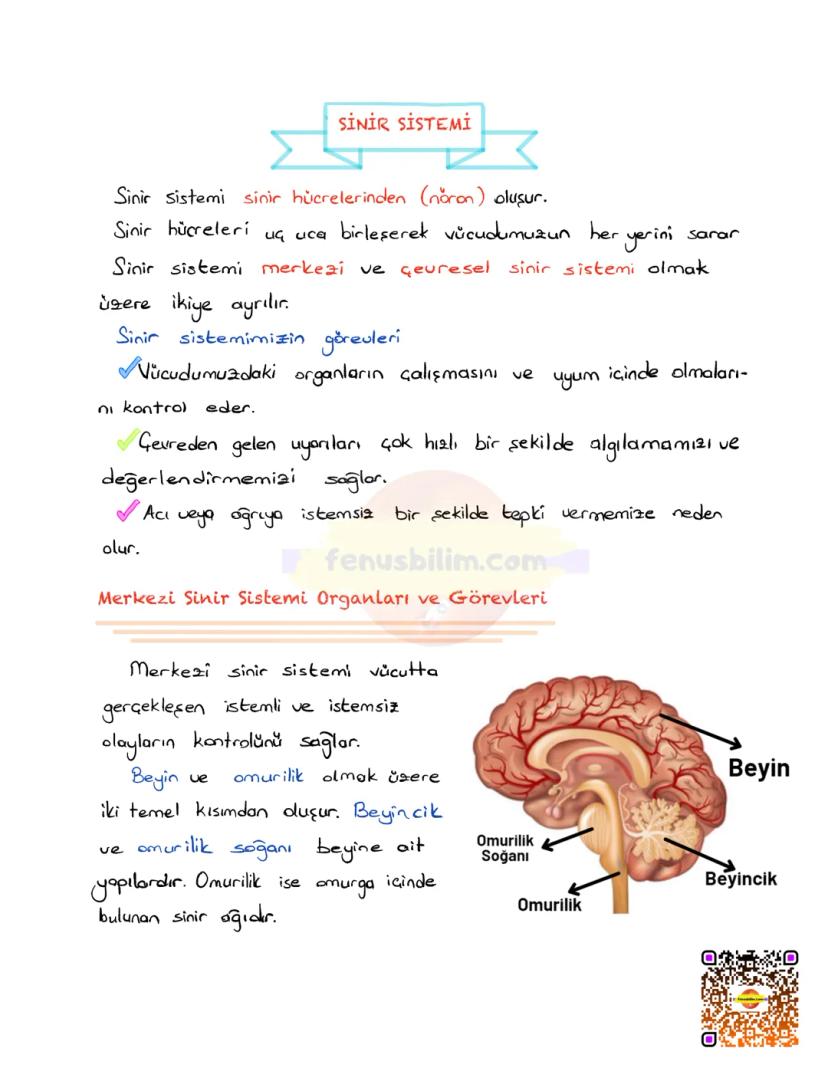 SİNİR SİSTEMİ
Sinir sistemi sinir hücrelerinden (nöron) oluşur.
Sinir hücreleri uç uca birleşerek vücudumuzun her yerini sarar
Sinir sistemi merkezi ve çevresel sinir sistemi olmak
üzere ikiye ayrılır.
Sinir sistemimizin görevleri
Vücudumuzdaki organların çalışmasını ve uyum içinde olmaları-
nı kontrol eder.
Çevreden gelen uyarıları çok hızlı bir şekilde algılamamızı ve
değerlendirmemizi sağlar.
Acı veya ağrıya istemsiz bir şekilde tepki vermemize neden
olur.
fenusbilim.com
Merkezi Sinir Sistemi Organları ve Görevleri
Merkezi sinir sistemi vücutta
gerçekleşen istemli ve istemsiz
olayların kontrolünü sağlar.
Beyin ve omurilik olmak üzere
iki temel kısımdan oluşur. Beyincik
ve omurilik soğanı beyine ait
yapılardır. Omurilik ise omurga içinde
bulunan sinir ağıdır.
Beyin
Omurilik
Soğanı
Beyincik
Omurilik
Fenusbilim.com